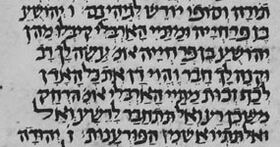 תורה וסופו יורש לגיהנם ו יהושע
בן פרחייה ומתיי הארבלי קיבלו מהן
יהושע בן פרחייה אומ' עשה לך רב
וקנה לך חבר והוי דן את כל האדן
לכף זכות מתיי הארבלי אומ' הרחק
משכן רע ואל תתחבר לרשע ואל
ואל תתייאש מן הפורענות ז יהודה